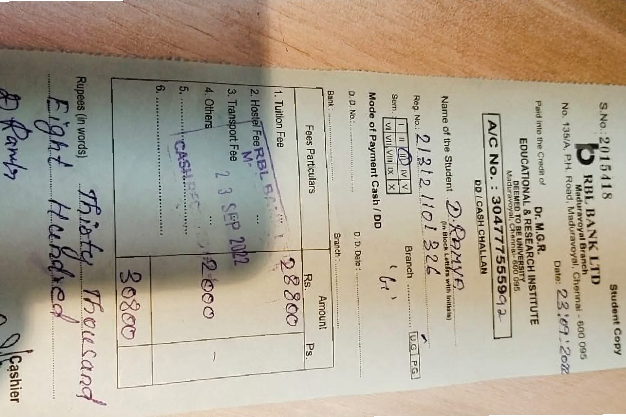 Student Copy
S.No: 2015418
RBL BANK LTD
Maduravoyal Branch
No. 135/A, P.H. Road, Maduravoyal, Chennai - 600 095
Date: 23/09/2022
Paid into the Credit of
Dr. M.G.R.
EDUCATIONAL & RESEARCH INSTITUTE
DEEMED TO BE UNIVERSITY
Maduravoyal Chennai-600 095
A/C No. : 304777555992
DD / CASH CHALLAN
Name of the Student D. RAMYA
(in Block Letters with Initials)
Reg. No.: 212121101326 Branch
UG PG
Sem. I II III IV V
VI VII VIII IX X
'G'
Mode of Payment Cash / DD
D.D. No. D.D. Date :
Bank: Branch:
Fees Particulars Amount
Rs. Ps.
1. Tuition Fee 28800
2. Hostel Fee
3. Transport Fee
4. Others 2000 -
5.
6.
30800
RBL BA
23 SEP 2022
CASH REC
Rupees (in words) Thirty Thousand
Eight Hundred
D. Ramya
Cashier